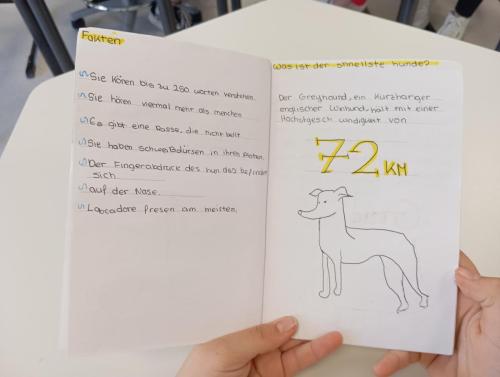 Fakten
Sie Können bis zu 250 worten verstehen.
Sie hören viermal mehr als menchen
Es gibt eine Rasse, die nicht bellt.
Sie haben schweißdürsen in ihren Pfoten.
Der Fingerabdruck des hun des befindet
sich
auf der Nase.
Labradore fresen am meisten.
was ist der shnellste hunde?
Der Greyhound, ein Kurzhariger
englischer Winhund, hält mit einer
Höchstgesch windigkeit von
72 KM